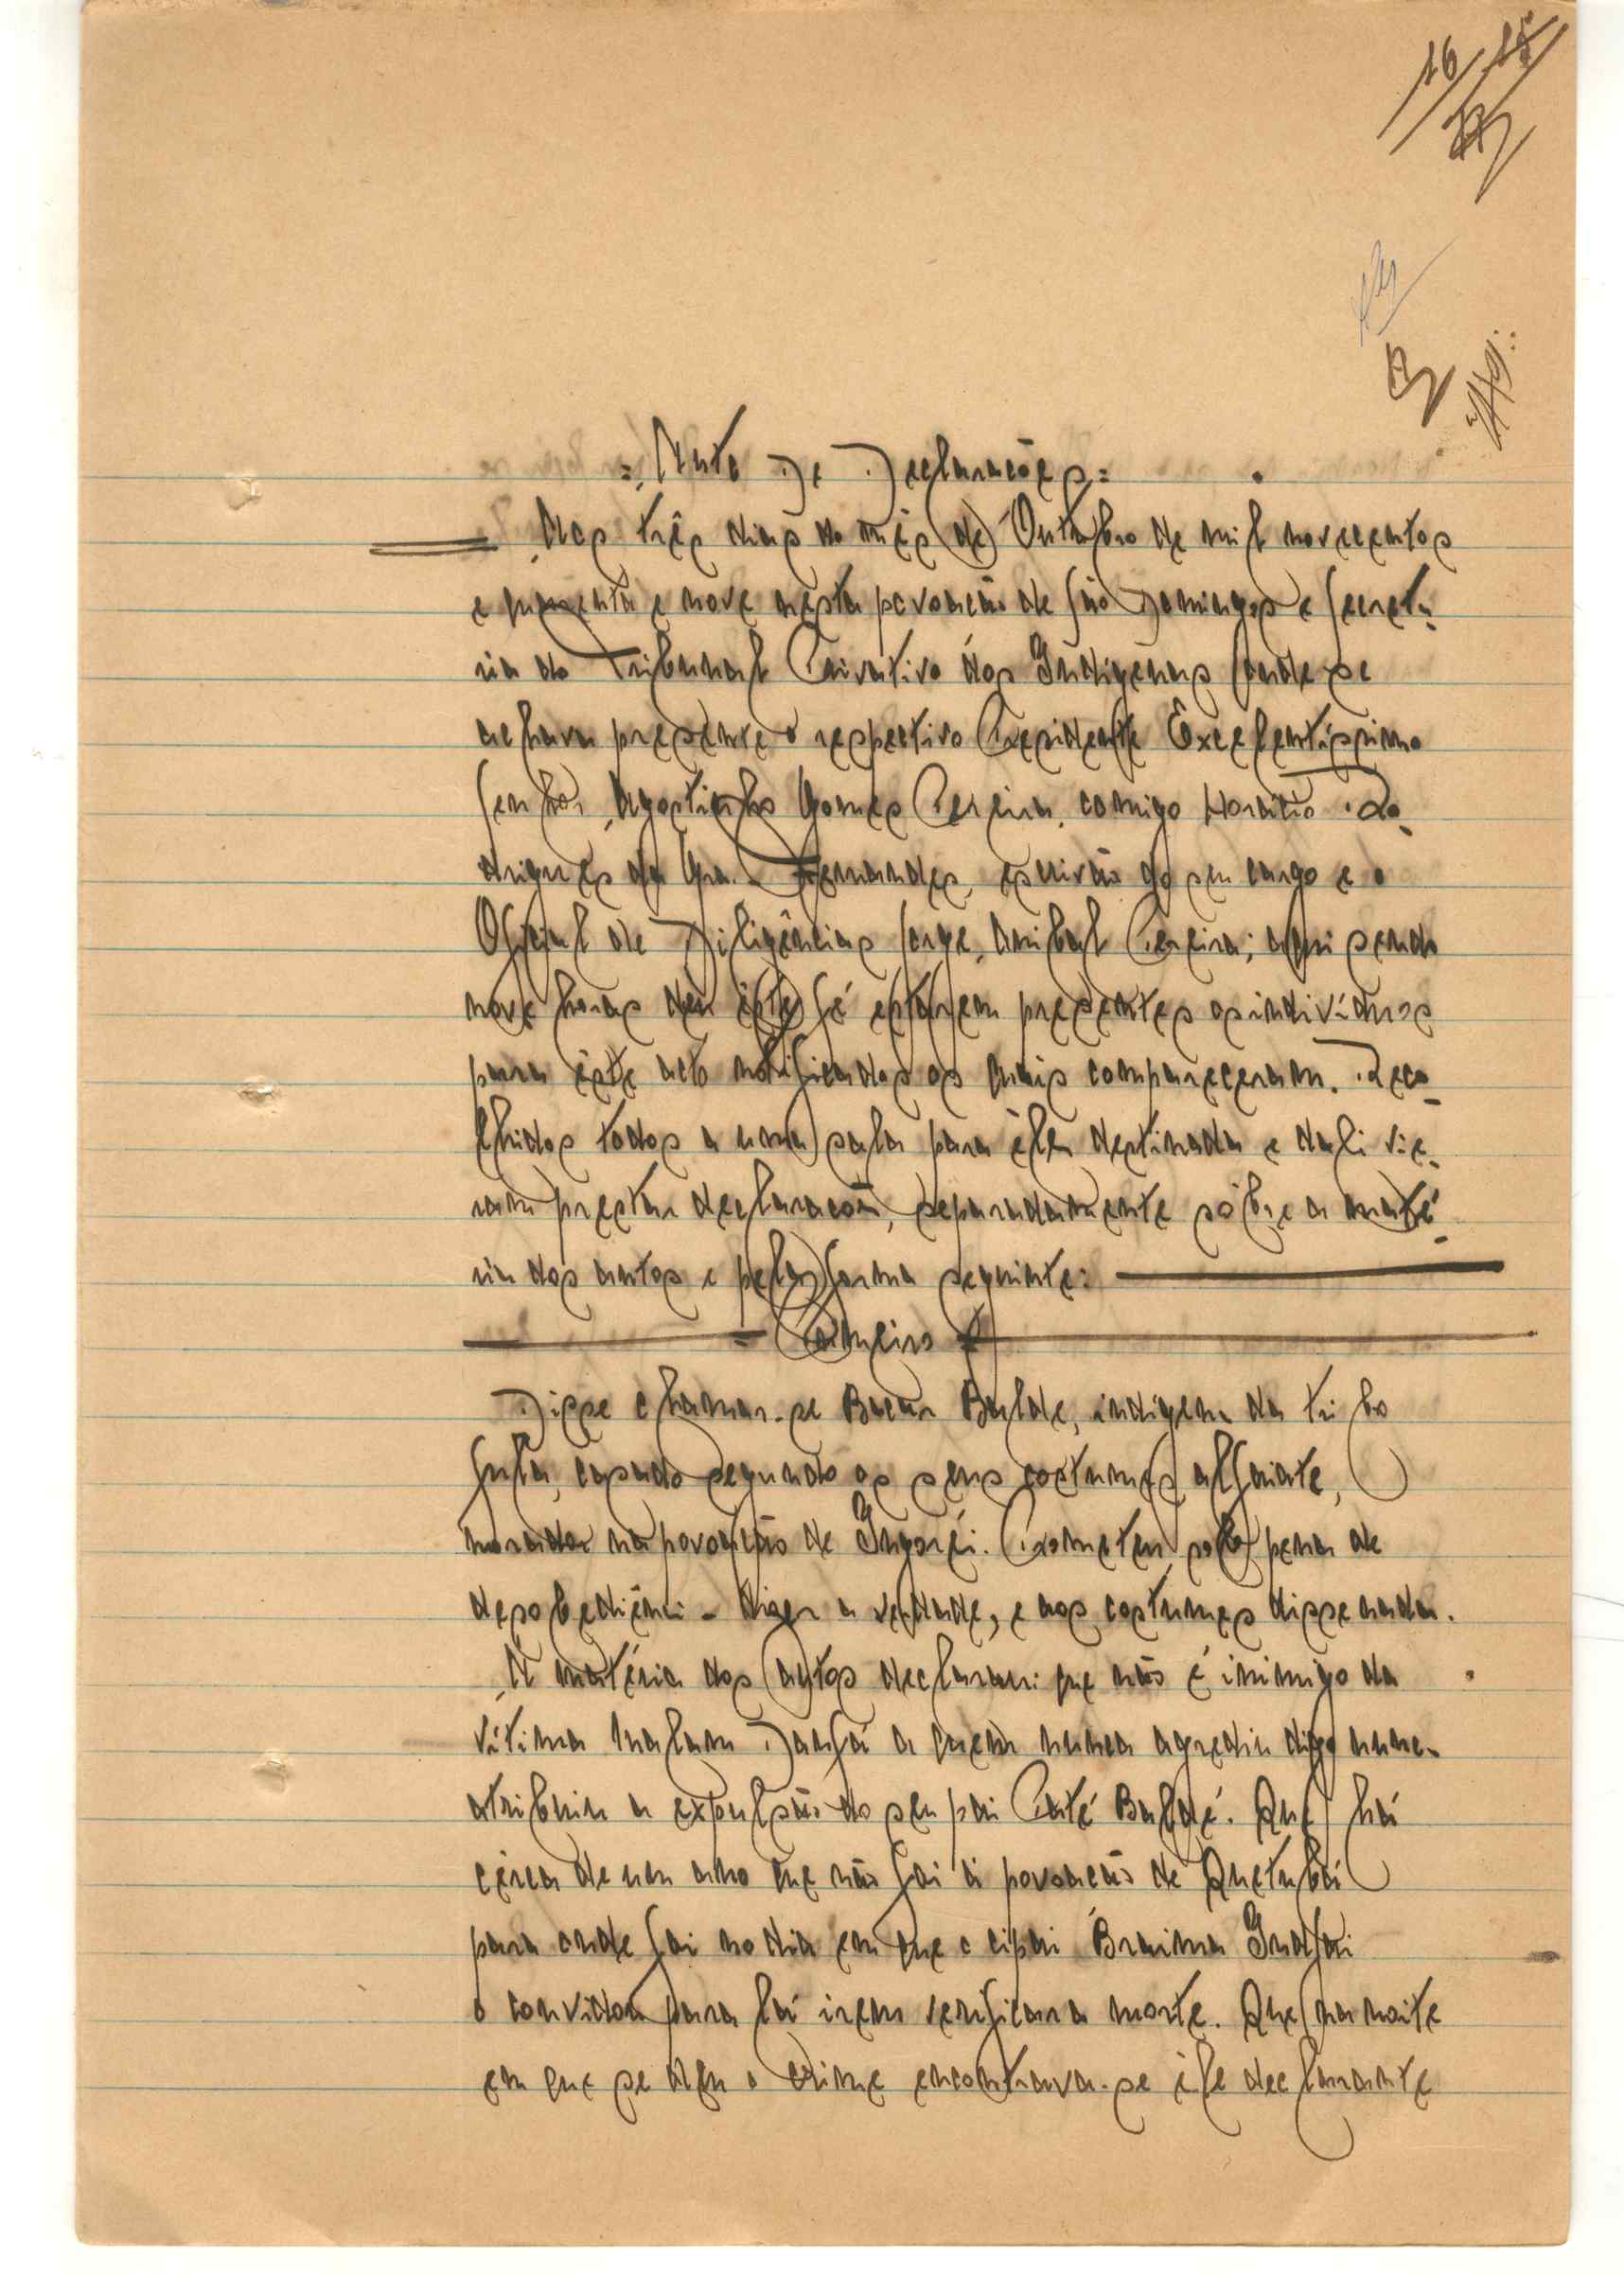 16 15
= Auto De Declarações =
Aos três dias do mês de Outubro de mil novecentos
e quarenta e nove nesta povoação de São Domingos e Secreta-
ria do Tribunal Privativo dos Indígenas onde se
achava presente o respectivo Presidente Excelentíssimo
Senhor Agostinho Gomes Pereira, comigo Horácio Ro-
drigues da Fernandes, escrivão do seu cargo e o
Oficial de Diligências Jorge Anibal Pereira; aqui sendo
nove horas deu êste fé estarem presentes os indivíduos
para êste acto notificados os quais compareceram. Reco-
lhidos todos a uma sala para êles destinada e dali vie-
ram prestar declaração, separadamente sôbre a maté-
ria dos autos e pela forma seguinte:
= Primeiro =
Disse chamar-se Bacar Balde, indígena da tribo
fula, casado segundo os seus costumes alfaiate,
morador na povoação de Ingoréi. Prometeu sob pena de
desobediência dizer a verdade, e aos costumes disse nada.
À matéria dos autos declarou: que não é inimigo da
vítima Malam Danfá a quem nunca agrediu digo nunca
atribuiu a expulsão do seu pai Paté Baldé. Que há
cêrca de um ano que não foi à povoação de Quetubai
para onde foi no dia em que o cipai Braima Indjai
o convidou para lá irem verificar a morte. Que na noite
em que se deu o crime encontrava-se êle declarante